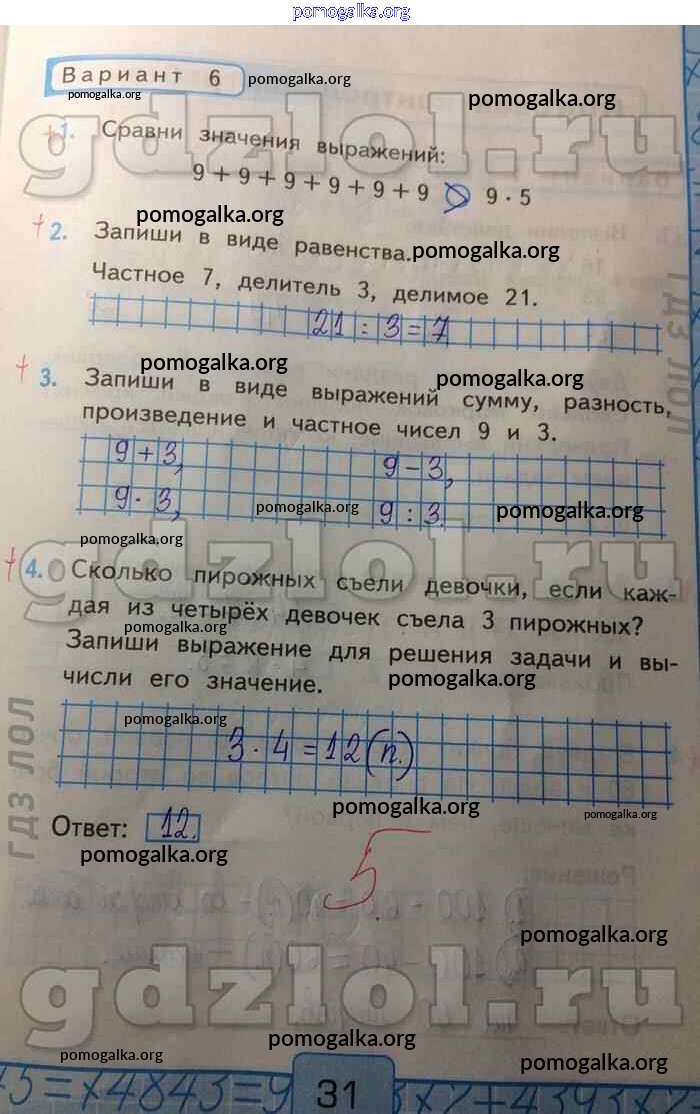 pomogalka.org
Вариант 6 pomogalka.org
pomogalka.org
pomogalka.org
gdzlol.ru
+ 1. Сравни значения выражений:
9 + 9 + 9 + 9 + 9 + 9 > 9 · 5
pomogalka.org
+ 2. Запиши в виде равенства.
pomogalka.org
Частное 7, делитель 3, делимое 21.
21 : 3 = 7
ГДЗ ЛОЛ
pomogalka.org
pomogalka.org
+ 3. Запиши в виде выражений сумму, разность,
произведение и частное чисел 9 и 3.
9 + 3, 9 - 3,
9 · 3, 9 : 3.
pomogalka.org
pomogalka.org
gdzlol.ru
pomogalka.org
+ 4. Сколько пирожных съели девочки, если каж-
дая из четырёх девочек съела 3 пирожных?
pomogalka.org
Запиши выражение для решения задачи и вы-
числи его значение.
pomogalka.org
ГДЗ ЛОЛ
pomogalka.org
3 · 4 = 12 (п.)
pomogalka.org
pomogalka.org
Ответ: 12.
pomogalka.org
5
pomogalka.org
gdzlol.ru
pomogalka.org
pomogalka.org
pomogalka.org
31